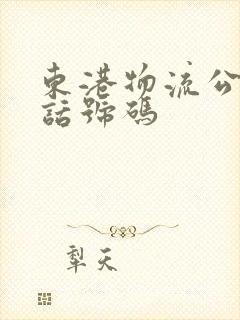 東港物流公
話號碼
犁天